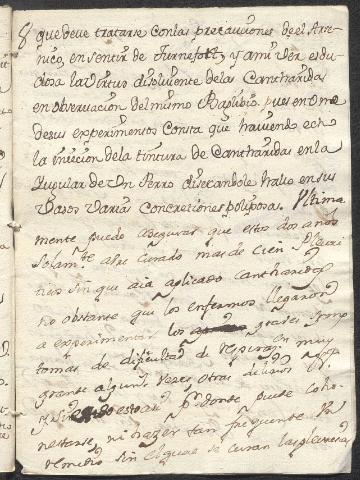 8
que deve tratarse con las precauciones de el Arse-
nico, en sentir de Turnefort, y a mi ver es du-
dosa la virtud disolvente de las Cantharidas
en observacion del mismo Baglibio. pues en Ono
de sus experimentos Consta que haviendo echo
la inieccion de la tintura de Cantharidas en la
Iugular de Vn Perro disecandole hallo en sus
Vasos Varias Concretiones poliposas. Vltima
mente puedo asegurar que estos dos años
solamte abre curado mas de cien Pleuri
ticos sin que aia aplicado cantharidas
no obstante que los enfermos llegaron
a experimentar los graves sympo
tomas de dificultad de respirar muy
grante algunas vezes, otras
donde puede coho-
nestarse, ni hazer tan frequente Vn
remedio sin el qual se curan las pleuresias